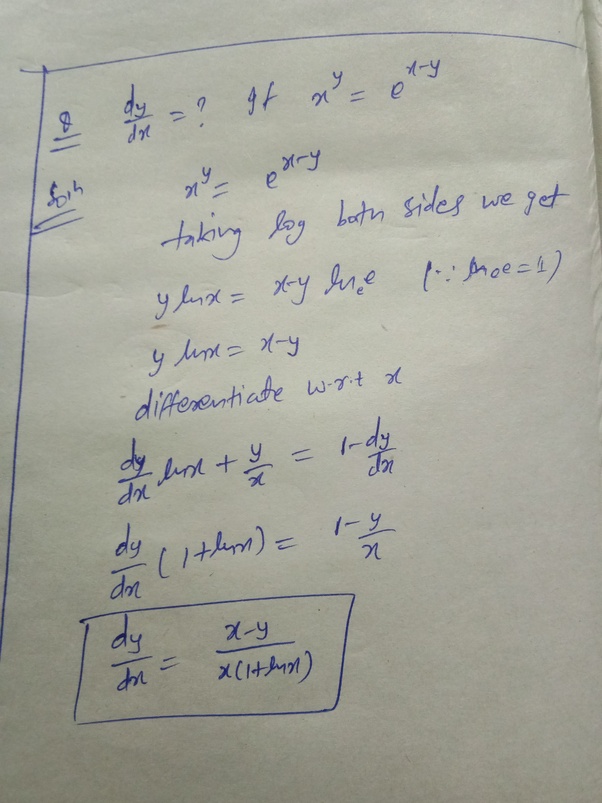 Q dy/dx = ? If x^y = e^(x-y)
Soln x^y = e^(x-y)
taking log both sides we get
y lnx = x-y ln_e e (∵ ln_e e = 1)
y lnx = x-y
differentiate w.r.t x
dy/dx lnx + y/x = 1 - dy/dx
dy/dx (1+lnx) = 1 - y/x
dy/dx = x-y / x(1+lnx)